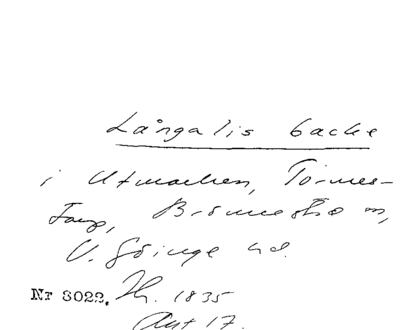 Långalis backe
i Utmarken, Törines-
torp, Brönnestad sn,
V. Göinge hd.
Nr 3022. Th. 1835
Akt 17.